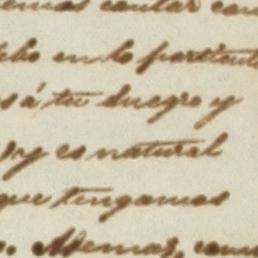 emos contar con
cho en lo particul
s á tu suegro y
y es natural
que tengamos
. Ademas, com